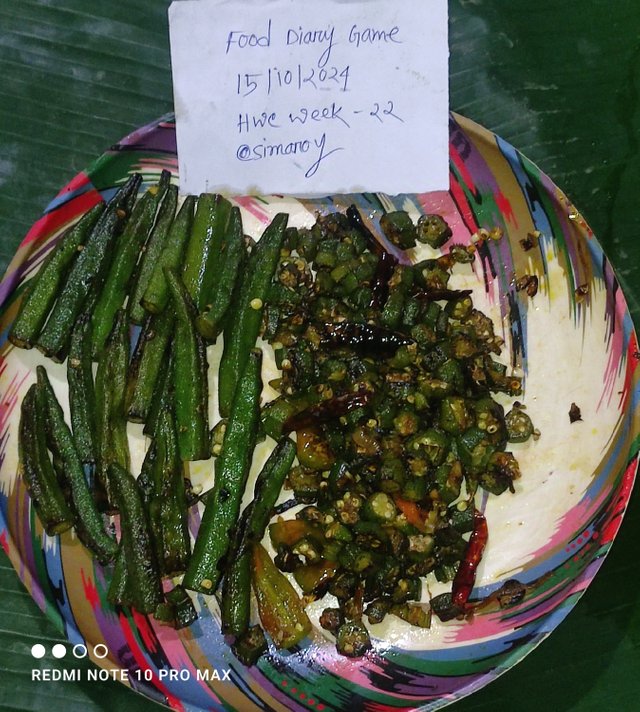 Food Diary Game
15/10/2024
Hwc week - 22
@simaroy
REDMI NOTE 10 PRO MAX